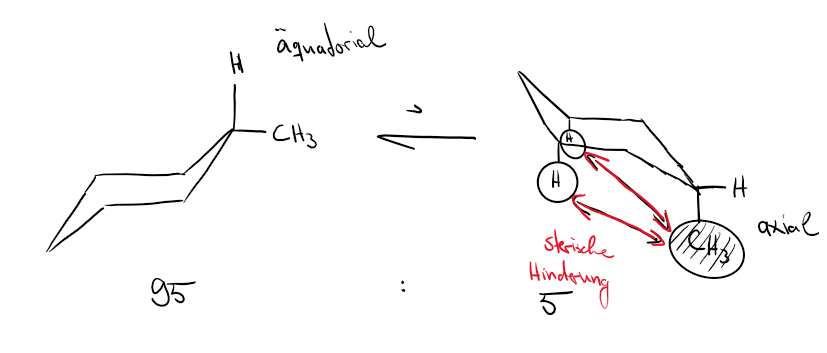 äquatorial
H
CH3
H
H
H
CH3
axial
sterische
Hinderung
95 : 5